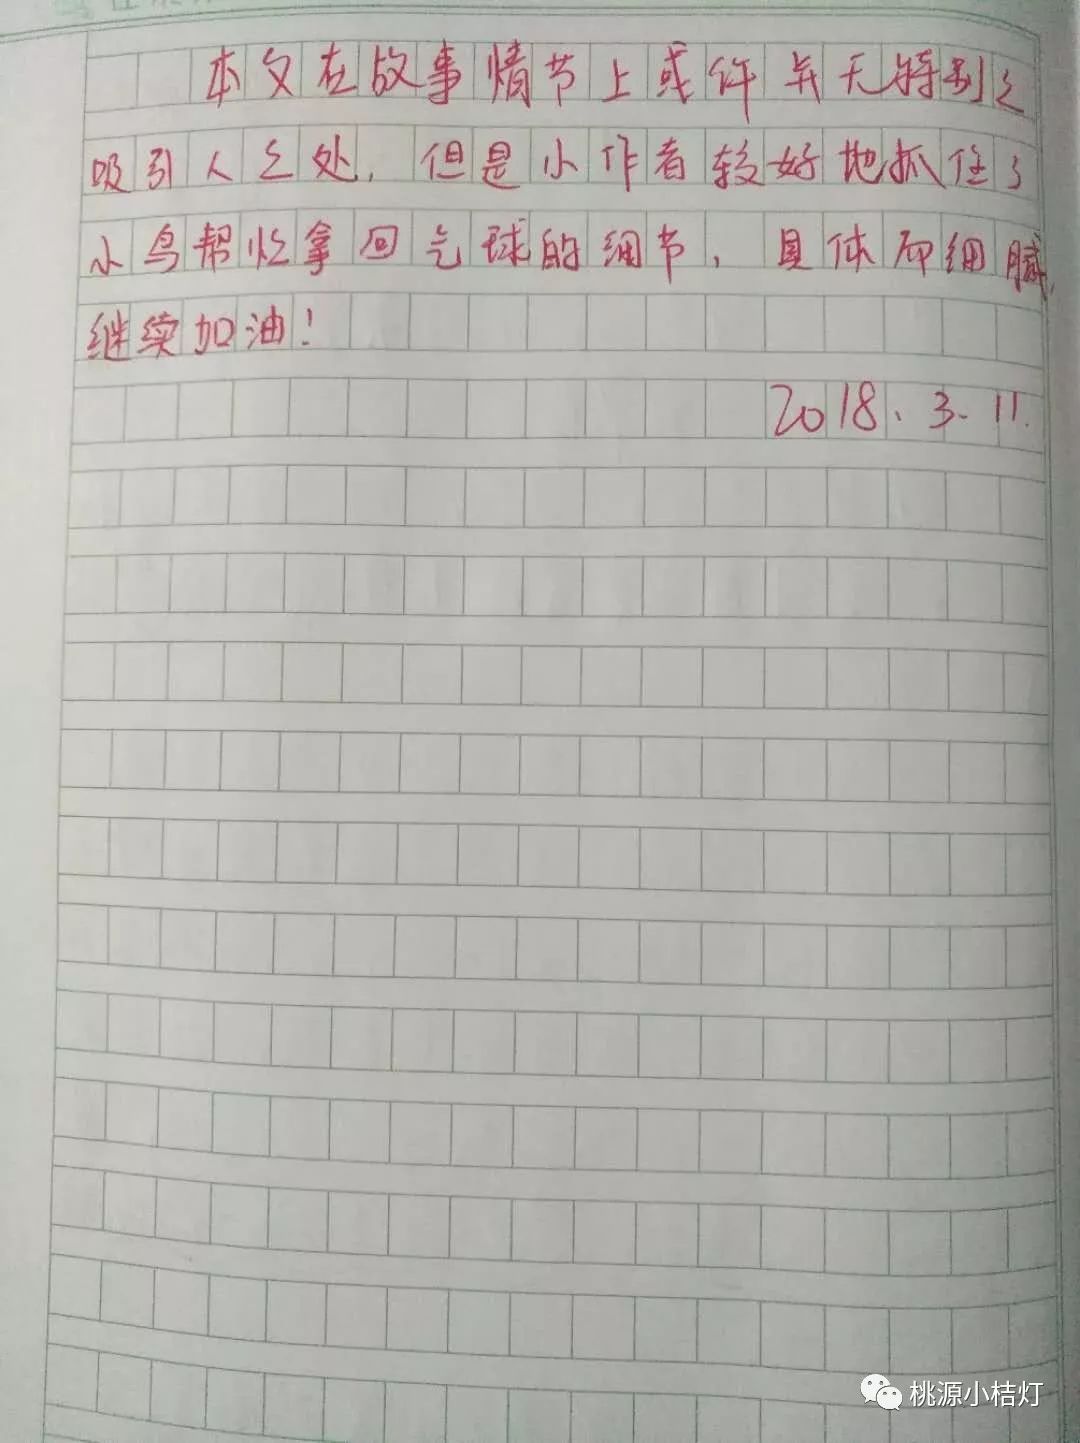 本文在故事情节上或许并无特别之
吸引人之处，但是小作者较好地抓住了
小鸟帮忙拿回气球的细节，具体而细腻，
继续加油！
2018、3、11.
桃源小桔灯